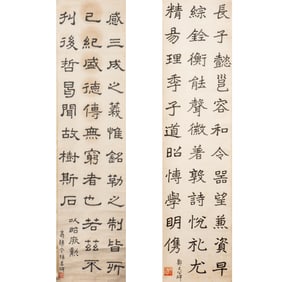 長子懿邕容和令器望兼資早
綜銓衡能聲徽著敦詩悅礼尤
精易理季子道昭博學明儁
鄭文公碑
感三成之義惟銘勒之制皆所
已紀盛德傳無窮者也若茲不
刊後哲曷聞故樹斯石
以昭厥勳